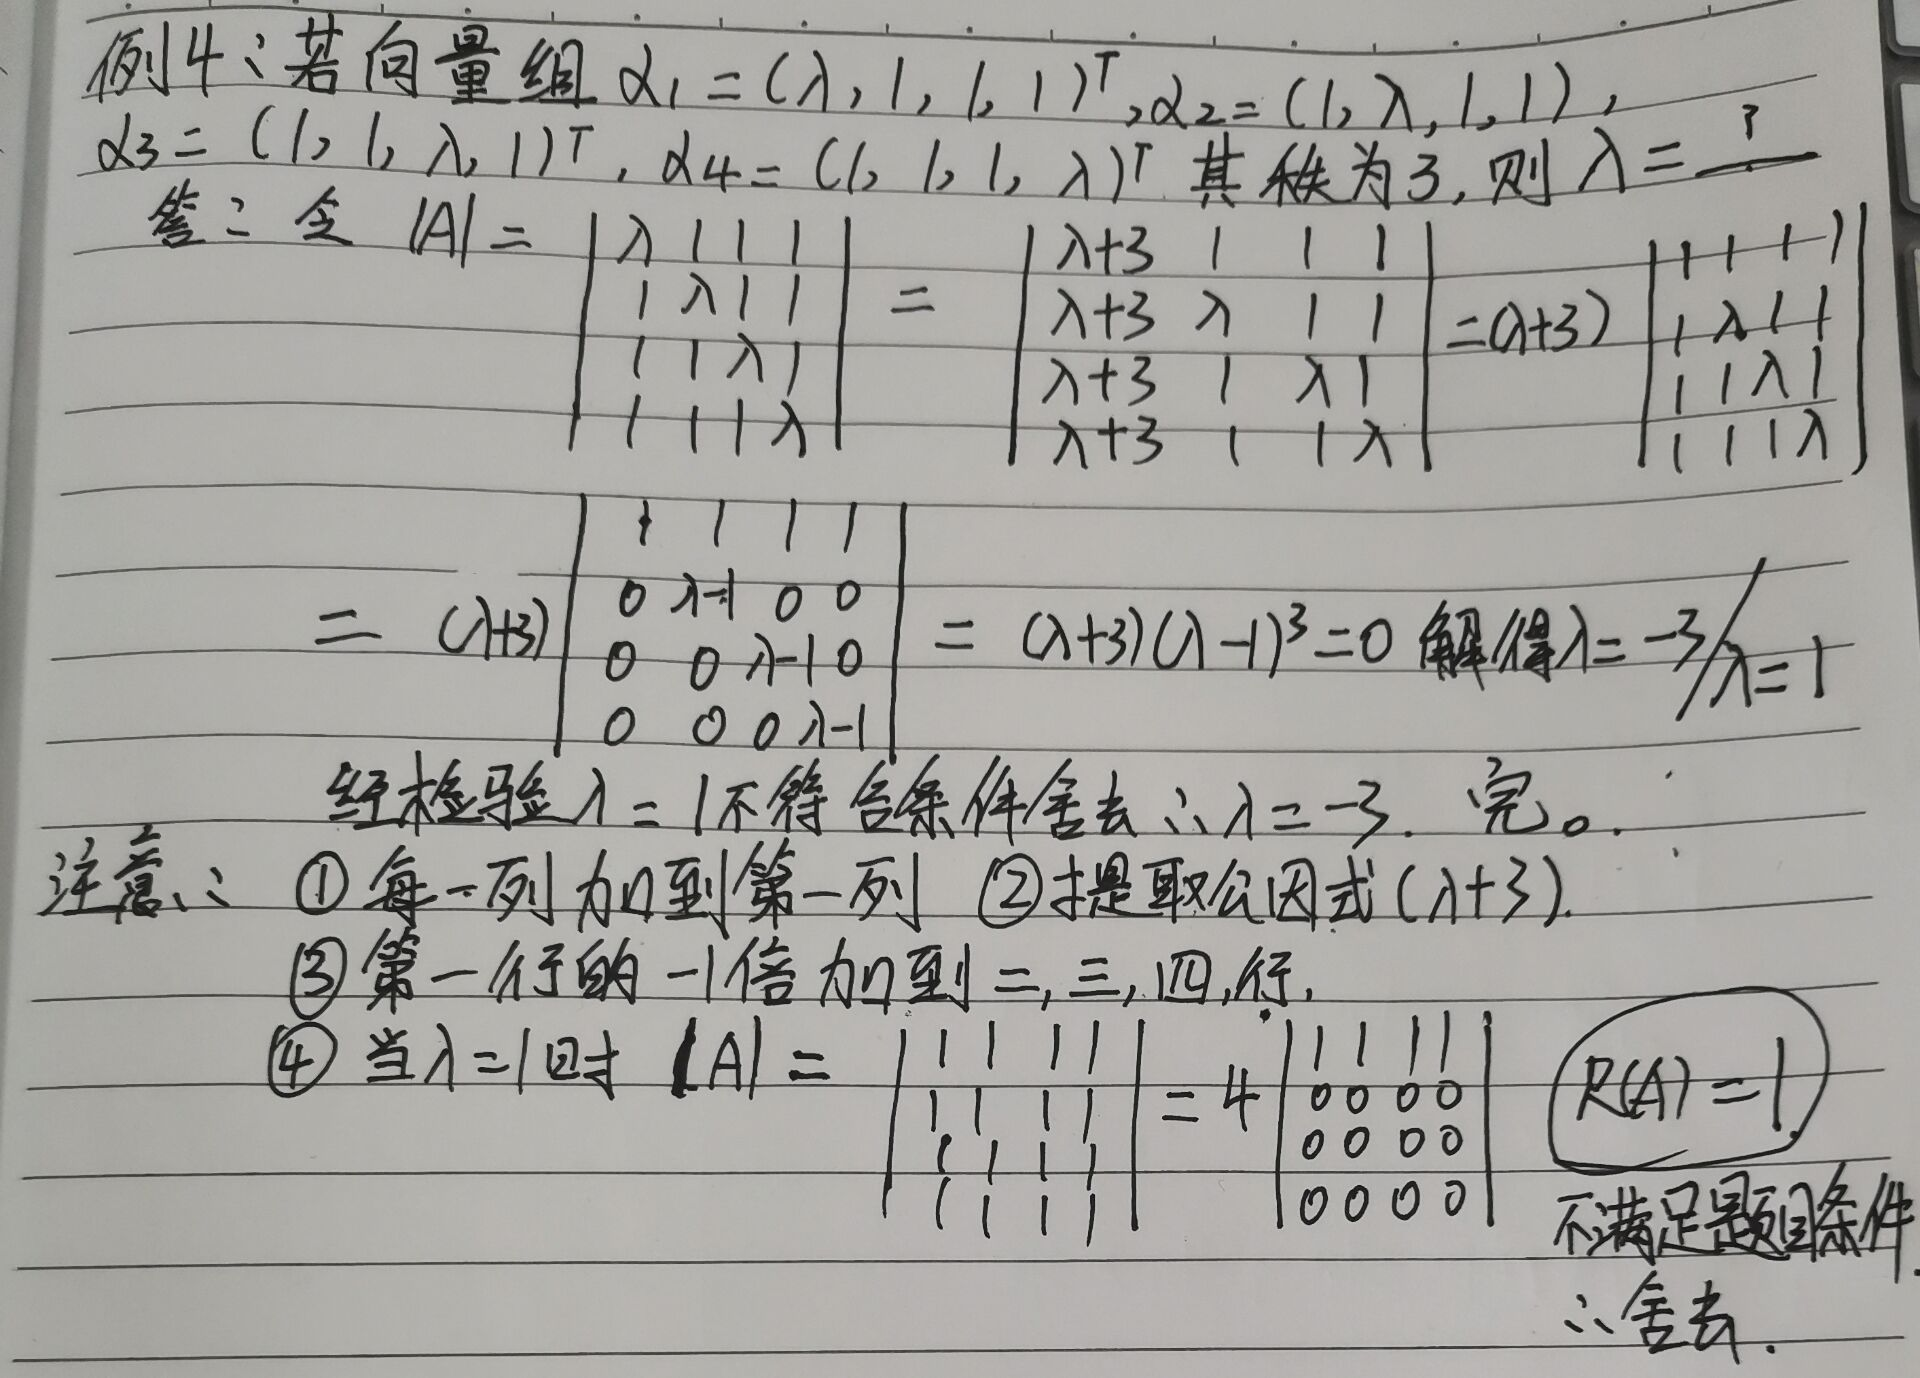 例4：若向量组 α₁=(λ,1,1,1)ᵀ,α₂=(1,λ,1,1),
α₃=(1,1,λ,1)ᵀ,α₄=(1,1,1,λ)ᵀ 其秩为3,则 λ=?
答：令 |A|= |λ 1 1 1; 1 λ 1 1; 1 1 λ 1; 1 1 1 λ| = |λ+3 1 1 1; λ+3 λ 1 1; λ+3 1 λ 1; λ+3 1 1 λ| =(λ+3) |1 1 1 1; 1 λ 1 1; 1 1 λ 1; 1 1 1 λ|
= (λ+3) |1 1 1 1; 0 λ-1 0 0; 0 0 λ-1 0; 0 0 0 λ-1| = (λ+3)(λ-1)³=0 解得λ=-3/λ=1
经检验λ=1不符合条件舍去∴λ=-3. 完。
注意：①每一列加到第一列 ②提取公因式(λ+3).
③第一行的-1倍加到二,三,四,行,
④当λ=1时 |A|= |1 1 1 1; 1 1 1 1; 1 1 1 1; 1 1 1 1| =4 |1 1 1 1; 0 0 0 0; 0 0 0 0; 0 0 0 0| R(A)=1.
不满足题目条件.
∴舍去.